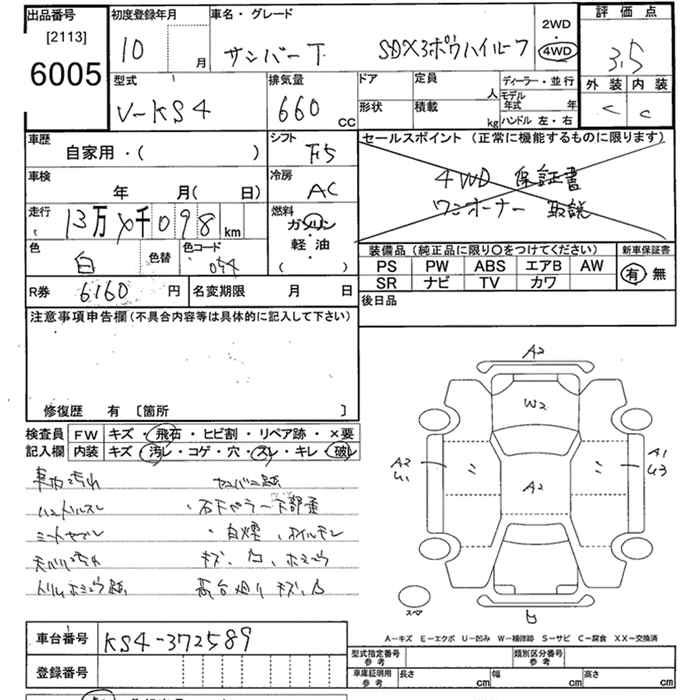 出品番号
[2113]
6005
初度登録年月
10 月
車名・グレード
サンバーT SDX3ボウハイルーフ
2WD
・
4WD
評価点
3.5
外装 内装
C C
型式
V-KS4
排気量
660 CC
ドア
形状
定員 人
積載 kg
ディーラー・並行
モデル
年式 年
ハンドル 左・右
車歴
自家用・( )
シフト
F5
車検
年 月( 日)
冷房
AC
走行
13万 4千 098 km
燃料
ガソリン
軽・油
( )
色
白
色替
色コード
054
R券 6160 円
名変期限 月 日
セールスポイント(正常に機能するものに限ります)
4WD 保証書
ワンオーナー 取説
装備品(純正品に限り〇をつけてください)
PS PW ABS エアB AW
SR ナビ TV カワ
新車保証書
有 無
後日品
注意事項申告欄(不具合内容等は具体的に記入して下さい)
修復歴 有 〔箇所 〕
検査員
記入欄
FW キズ・飛石・ヒビ割・リペア跡・×要
内装 キズ・汚レ・コゲ・穴・スレ・キレ・破レ
車内汚れ
ハンドルスレ
石下カラー下部歪
キズ、凹
A2
W2
A2
U1
A2
A1
U3
スペア
A-キズ E-エクボ U-凹み W-補修跡 S-サビ C-腐食 XX-交換済
車台番号 KS4-372589
登録番号
型式指定番号
参考
類別区分番号
参考
車庫証明用
参考
長さ cm
幅 cm
高さ cm